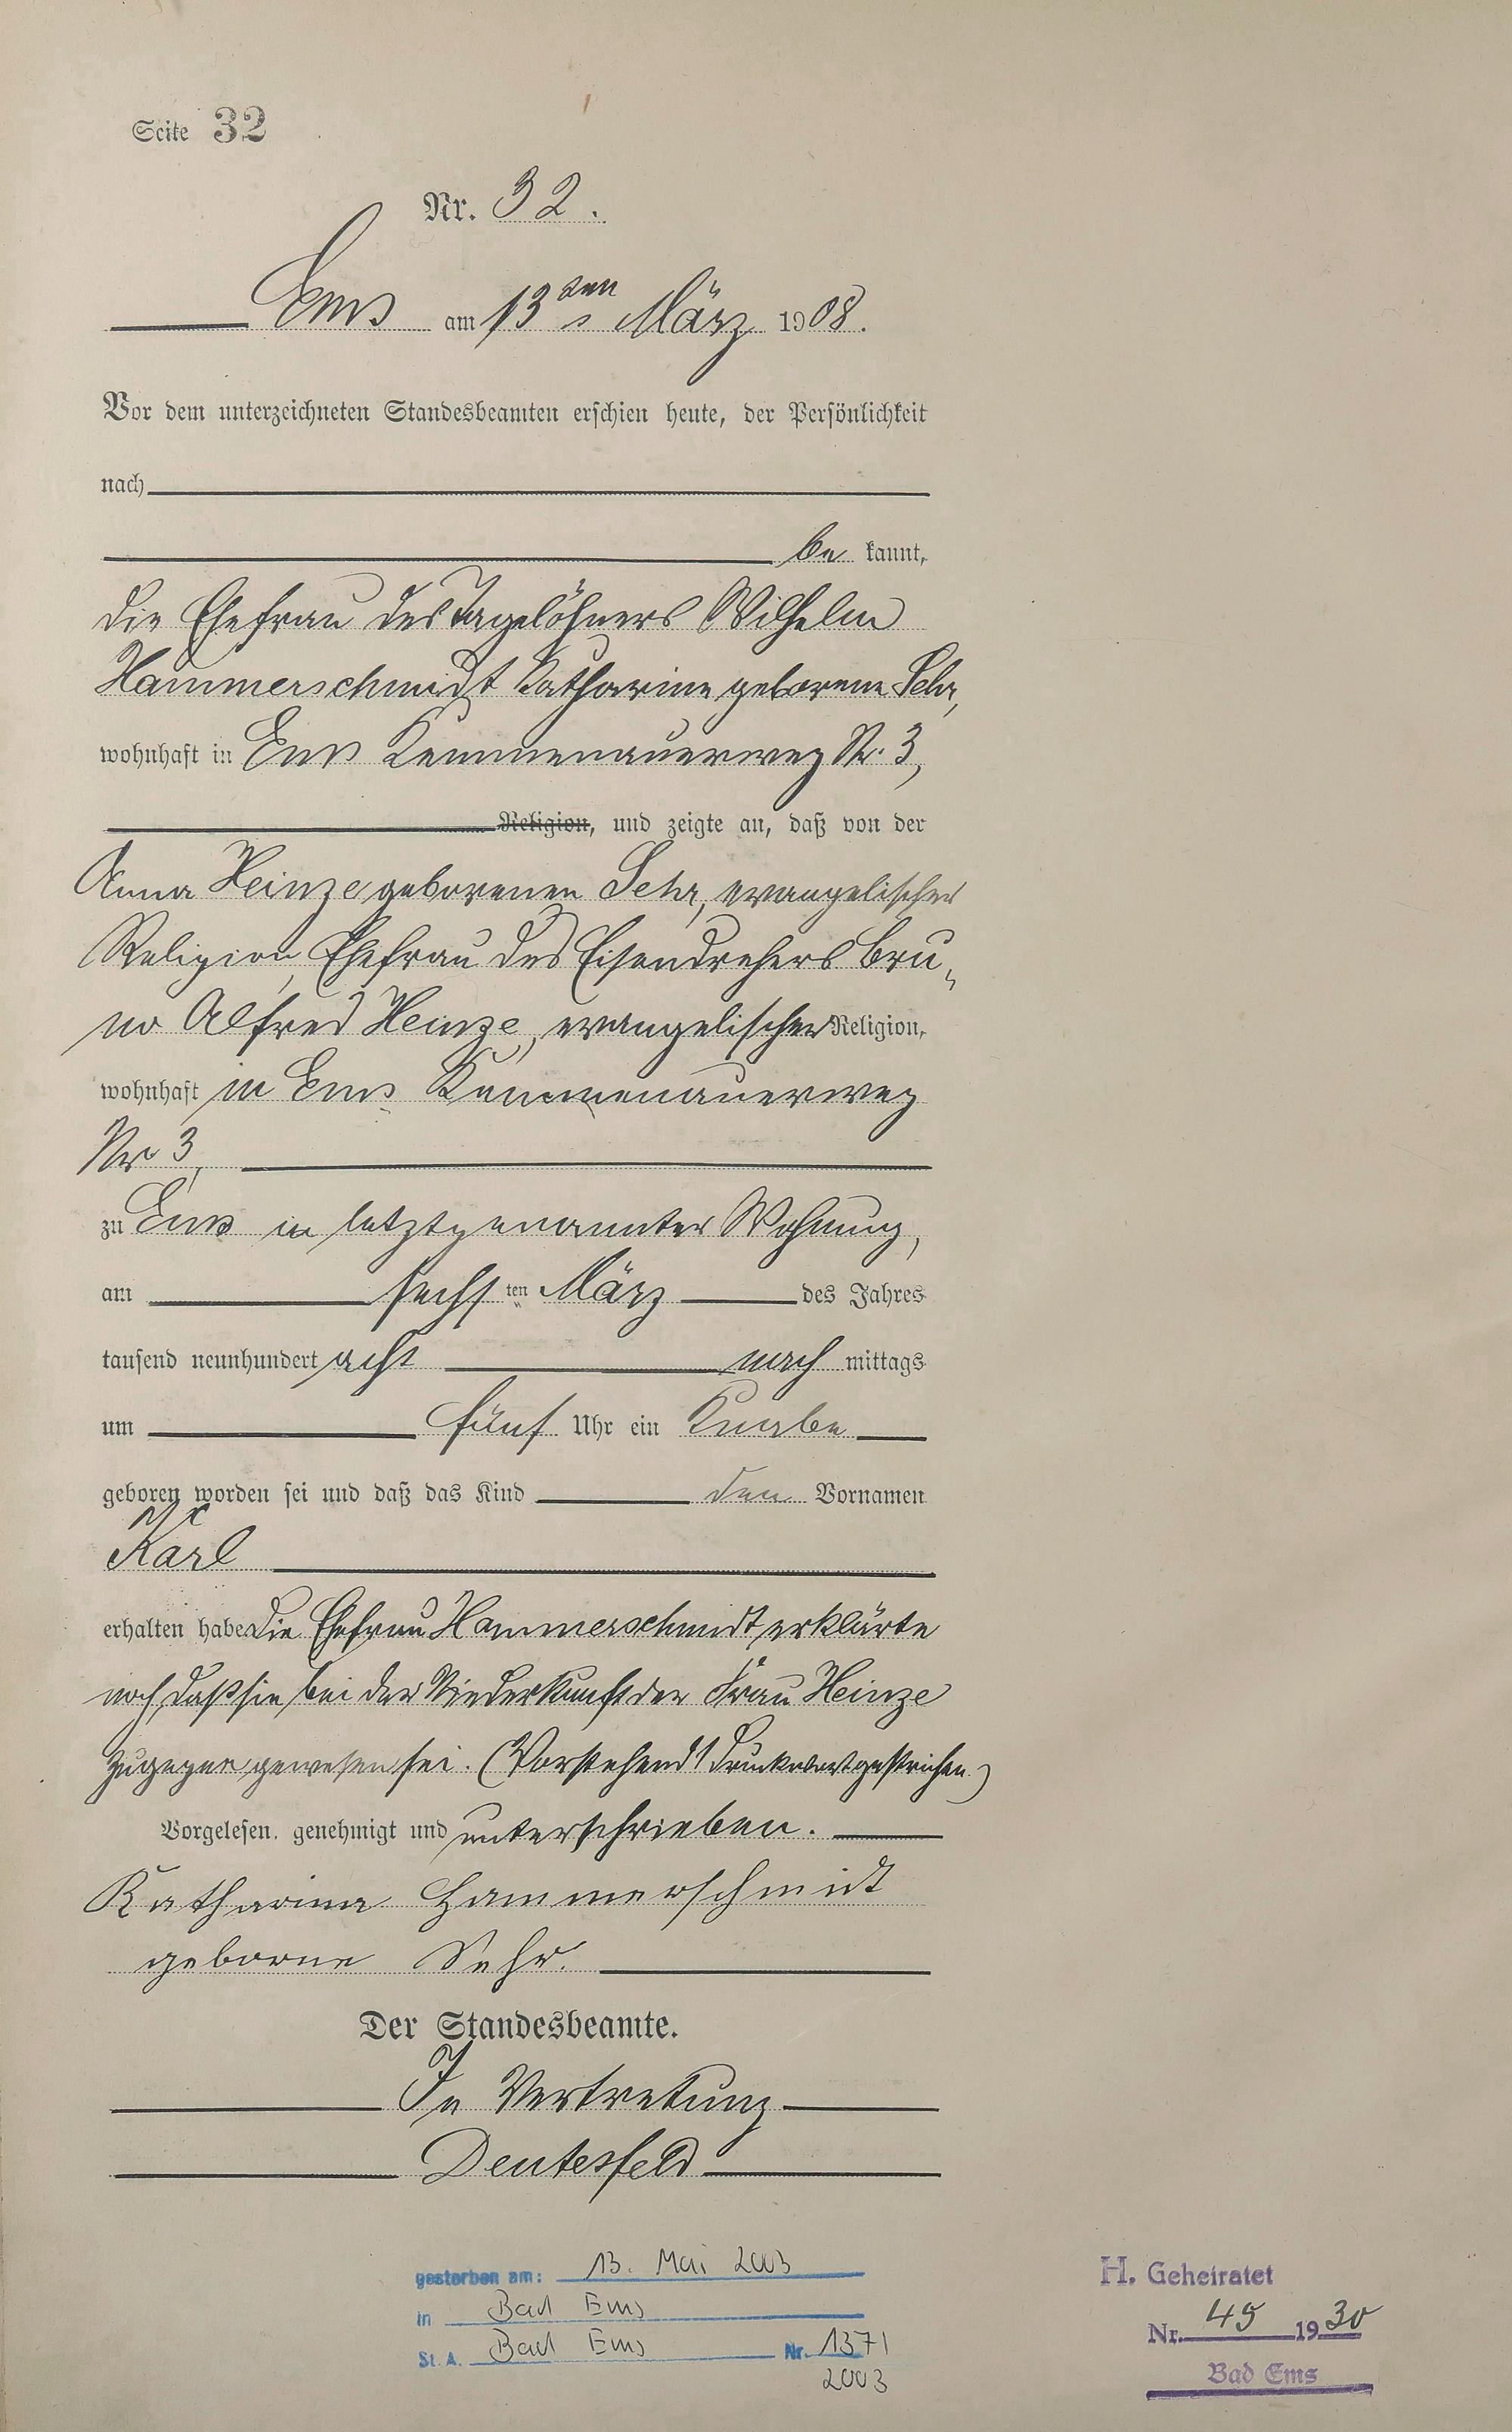 Seite 32
Nr. 32.
Ems am 13ten März 1908.
Vor dem unterzeichneten Standesbeamten erschien heute, der Persönlichkeit
nach
be kannt,
die Ehefrau des Tagelöhners Wilhelm
Hammerschmidt Katharine geborene Sehr,
wohnhaft in Ems Kemmenauerweg Nr. 3,
Religion, und zeigte an, daß von der
Anna Heinze geborenen Sehr, evangelischer
Religion, Ehefrau des Eisendrehers Bru„
no Alfred Heinze, evangelischer Religion,
wohnhaft in Ems Kemmenauerweg
Nr 3,
zu Ems in letztgenannter Wohnung,
am sechsten März des Jahres
tausend neunhundert acht nach mittags
um fünf Uhr ein Knabe
geboren worden sei und daß das Kind den Vornamen
Karl
erhalten habe Die Ehefrau Hammerschmidt erklärte
noch, daß sie bei der Niederkunft der Frau Heinze
zugegen gewesen sei. (Vorstehend 1 Druckwort gestrichen.)
Vorgelesen, genehmigt und unterschrieben.
Katharina Hammerschmidt
geborne Sehr.
Der Standesbeamte.
In Vertretung
Deutesfeld
gestorben am: 13. Mai 2003
in Bad Ems
St. A. Bad Ems Nr. 1371
2003
H. Geheiratet
Nr. 45 1930
Bad Ems